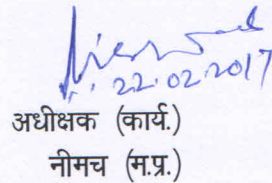 22.02.2017
अधीक्षक (कार्य.)
नीमच (म.प्र.)